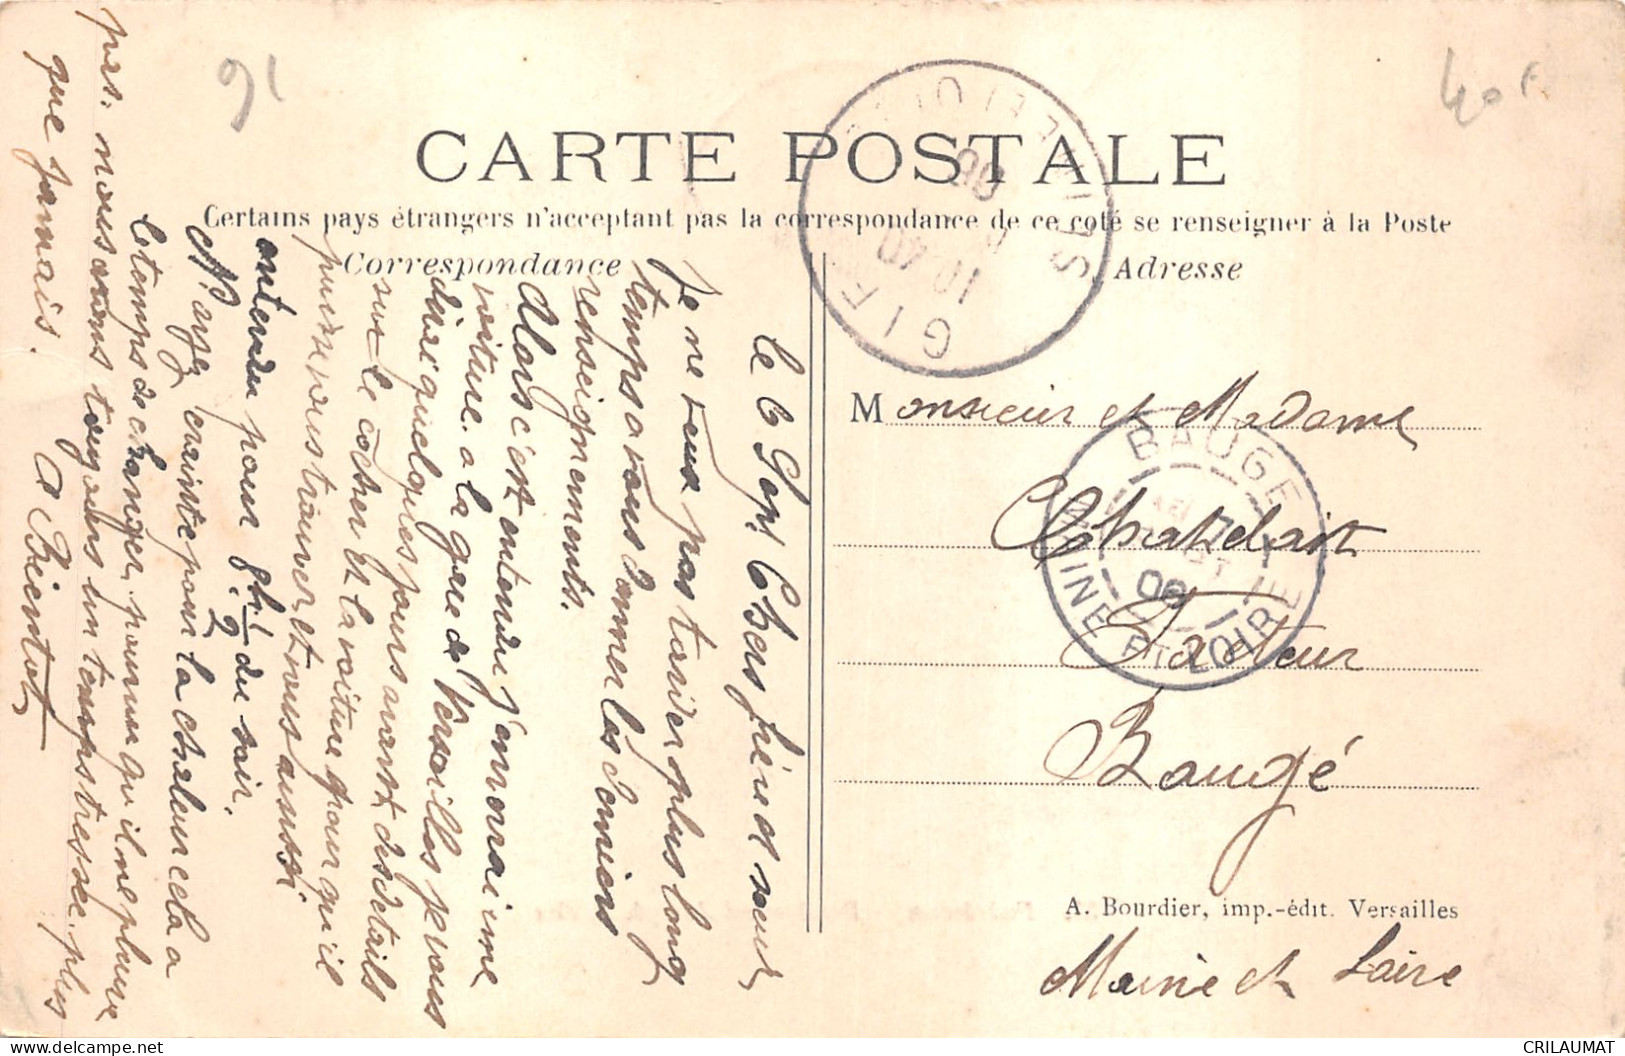 91
40 F
CARTE POSTALE
Certains pays étrangers n'acceptant pas la correspondance de ce coté se renseigner à la Poste
Correspondance
Adresse
le 6 Sept Chers frère et soeur
je ne veux pas tarder plus long
temps a vous donner les derniers
renseignements.
Alors c'est entendu j'enverrai une
voiture a la gare de Versailles je vous
dirai quelques jours avant des détails
sur le cocher et la voiture pour qu'il
puisse vous trouver et vous aussi
entendu pour 9h 1/2 du soir.
N'ayez crainte pour la chaleur cela a
le temps de changer, pourvu qu'il ne pleuve
pas. nous avons toujours un temps très sec. plus
que jamais. A Bientot
GIF
10 40
06
Monsieur et Madame
Chatelait
Facteur
Baugé
BAUGE
7
06
MAINE ET LOIRE
A. Bourdier, imp.-édit. Versailles
Maine et Loire
CRILAUMAT